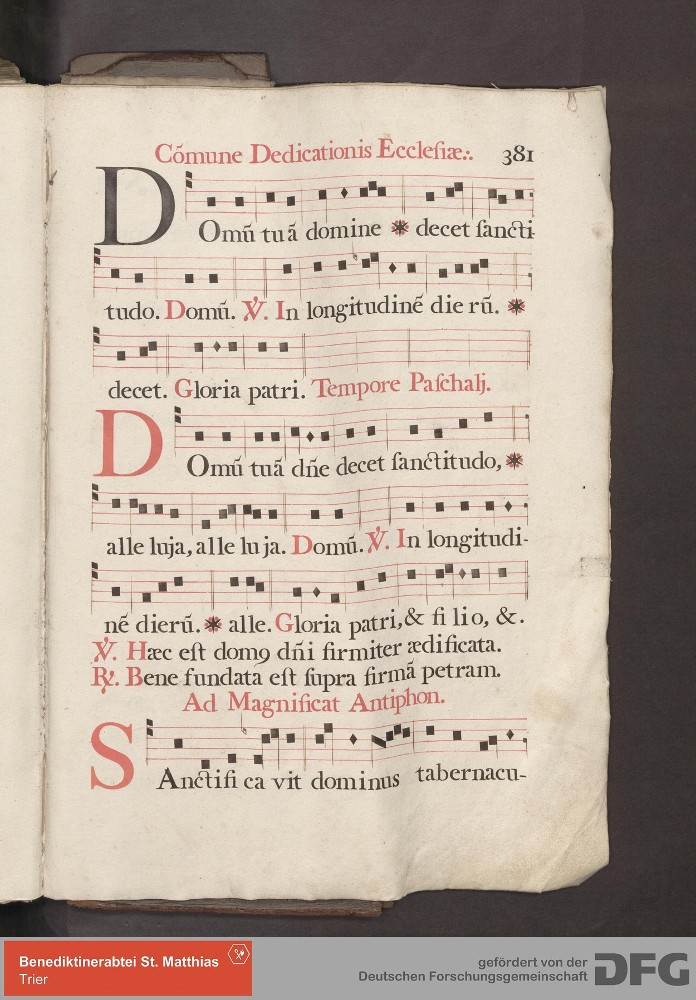 Cõmune Dedicationis Ecclesiæ. 381
DOmũ tuã domine * decet sancti-
tudo. Domũ. ℣. In longitudinẽ die rũ. *
decet. Gloria patri. Tempore Paschalj.
DOmũ tuã dñe decet sanctitudo, *
alle luja, alle lu ja. Domũ. ℣. In longitudi-
nẽ dierũ. * alle. Gloria patri, & fi lio, &.
℣. Hæc est domꝯ dñi firmiter ædificata.
℟. Bene fundata est supra firmã petram.
Ad Magnificat Antiphon.
SAnctifi ca vit dominus tabernacu-
Benediktinerabtei St. Matthias
Trier
gefördert von der
Deutschen Forschungsgemeinschaft
DFG